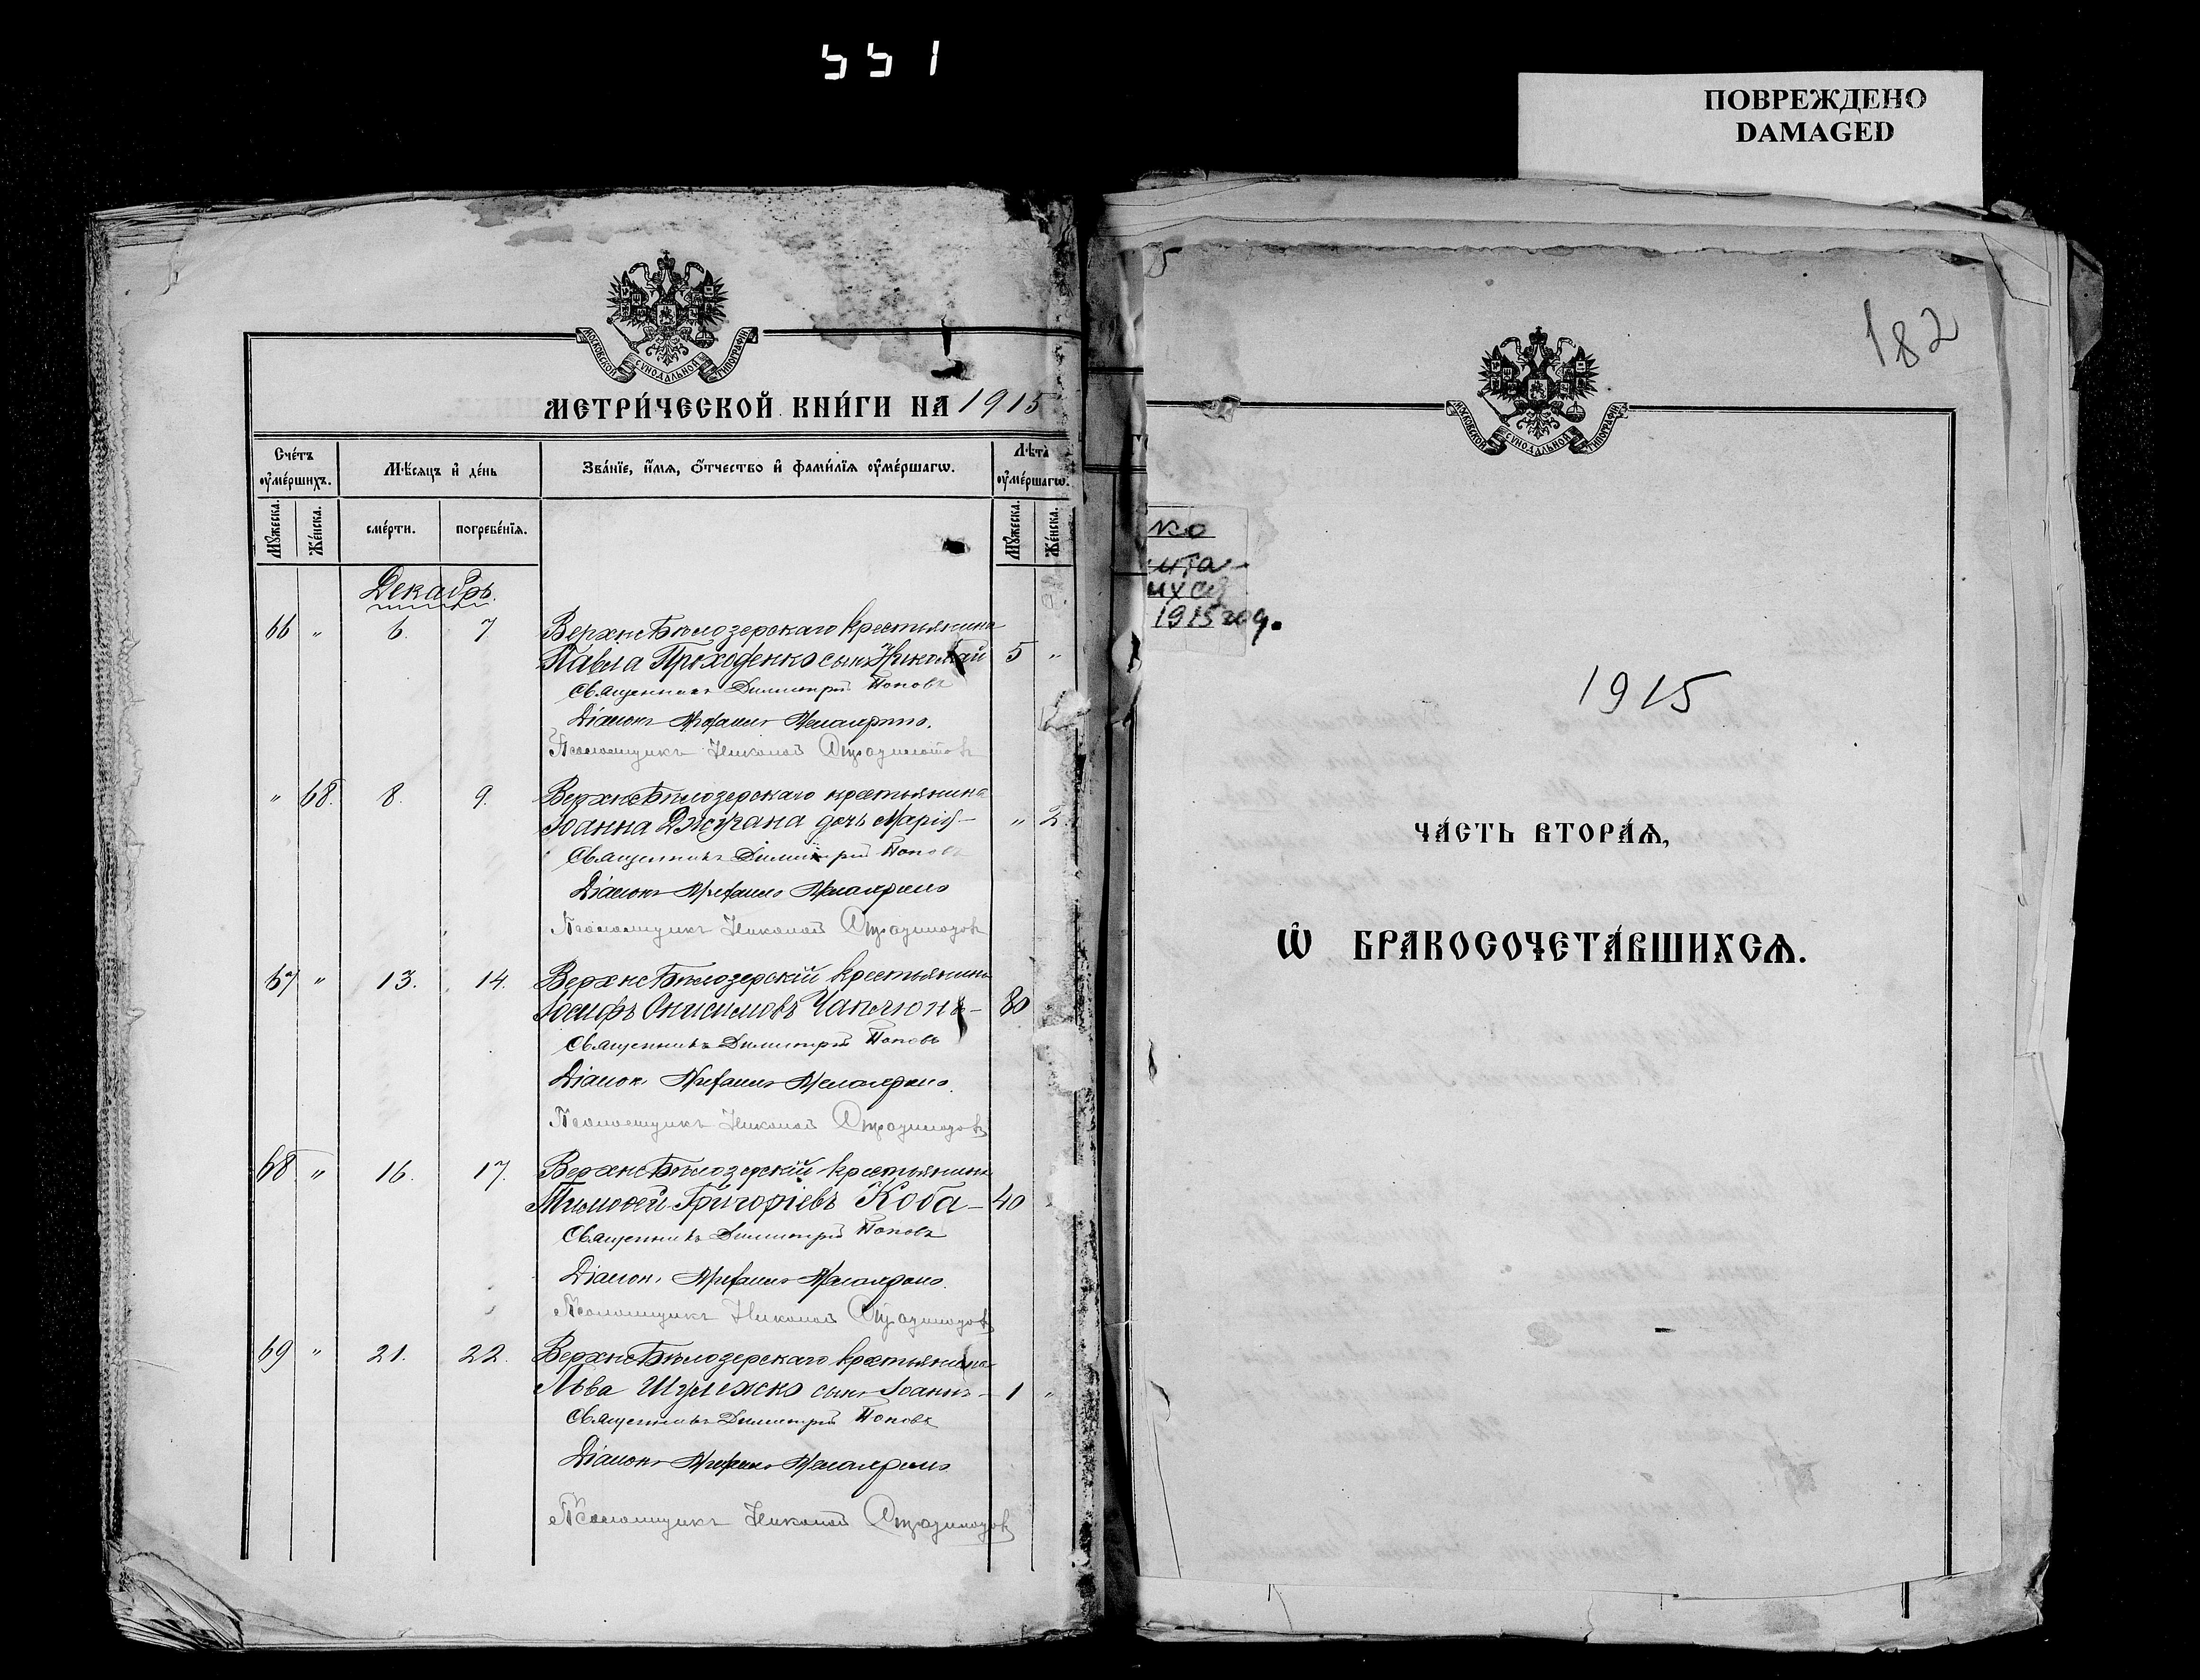 551
ПОВРЕЖДЕНО
DAMAGED
МОСКОВСКОЙ СѴНОДАЛЬНОЙ ТИПОГРАФІИ
МЕТРИ́ЧЕСКОЙ КНИ́ГИ НА 1915
Сче́тъ ᲂу҆ме́ршихъ.
Мѣ́сяцъ и҆ де́нь
Зва́нїе, и҆́мѧ, ѻ҆́тчество и҆ фами́лїѧ ᲂу҆ме́ршагѡ.
Лѣта̀ ᲂу҆ме́ршагѡ.
Мꙋ́жеска.
Же́нска.
сме́рти.
погребе́нїѧ.
Мꙋ́жеска.
Же́нска.
Декабрь.
66 " 6. 7 Верхне Бѣлозерскаго крестьянина
Павла Проходенко сынъ Николай 5 "
Священникъ Димитрій Поповъ
Діаконъ
Псаломщикъ Николай
" 68. 8. 9. Верхне Бѣлозерскаго крестьянина
Іоанна Джурана дочь Марія " 2
Священникъ Димитрій Поповъ
Діаконъ
Псаломщикъ Николай
67 " 13. 14. Верхне Бѣлозерскій крестьянинъ
Іосифъ Онисимовъ Чаплюнъ 80
Священникъ Димитрій Поповъ
Діаконъ
Псаломщикъ Николай
68 " 16. 17. Верхне Бѣлозерскій крестьянинъ
Тимоѳей Григоріевъ Коба 40
Священникъ Димитрій Поповъ
Діаконъ
Псаломщикъ Николай
69 " 21. 22. Верхне Бѣлозерскаго крестьянина
Льва Шулежко сынъ Іоаннъ 1 "
Священникъ Димитрій Поповъ
Діаконъ
Псаломщикъ Николай
182
МОСКОВСКОЙ СѴНОДАЛЬНОЙ ТИПОГРАФІИ
ко
ита-
ихся
1915 год.
1915
ЧА́СТЬ ВТОРА́Ѧ,
Ѡ҆ БРАКОСОЧЕТА́ВШИХСѦ.